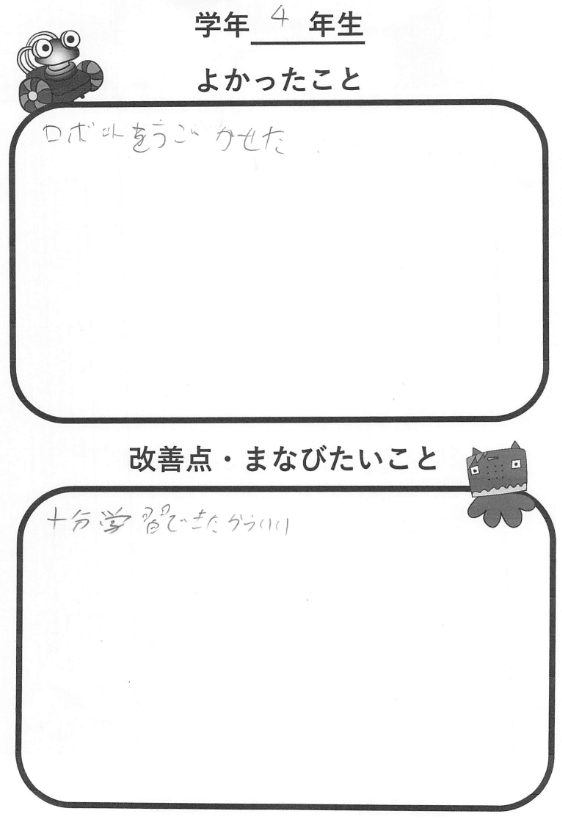 学年 4 年生
よかったこと
ロボットをうごかせた
改善点・まなびたいこと
十分学習できたからいい